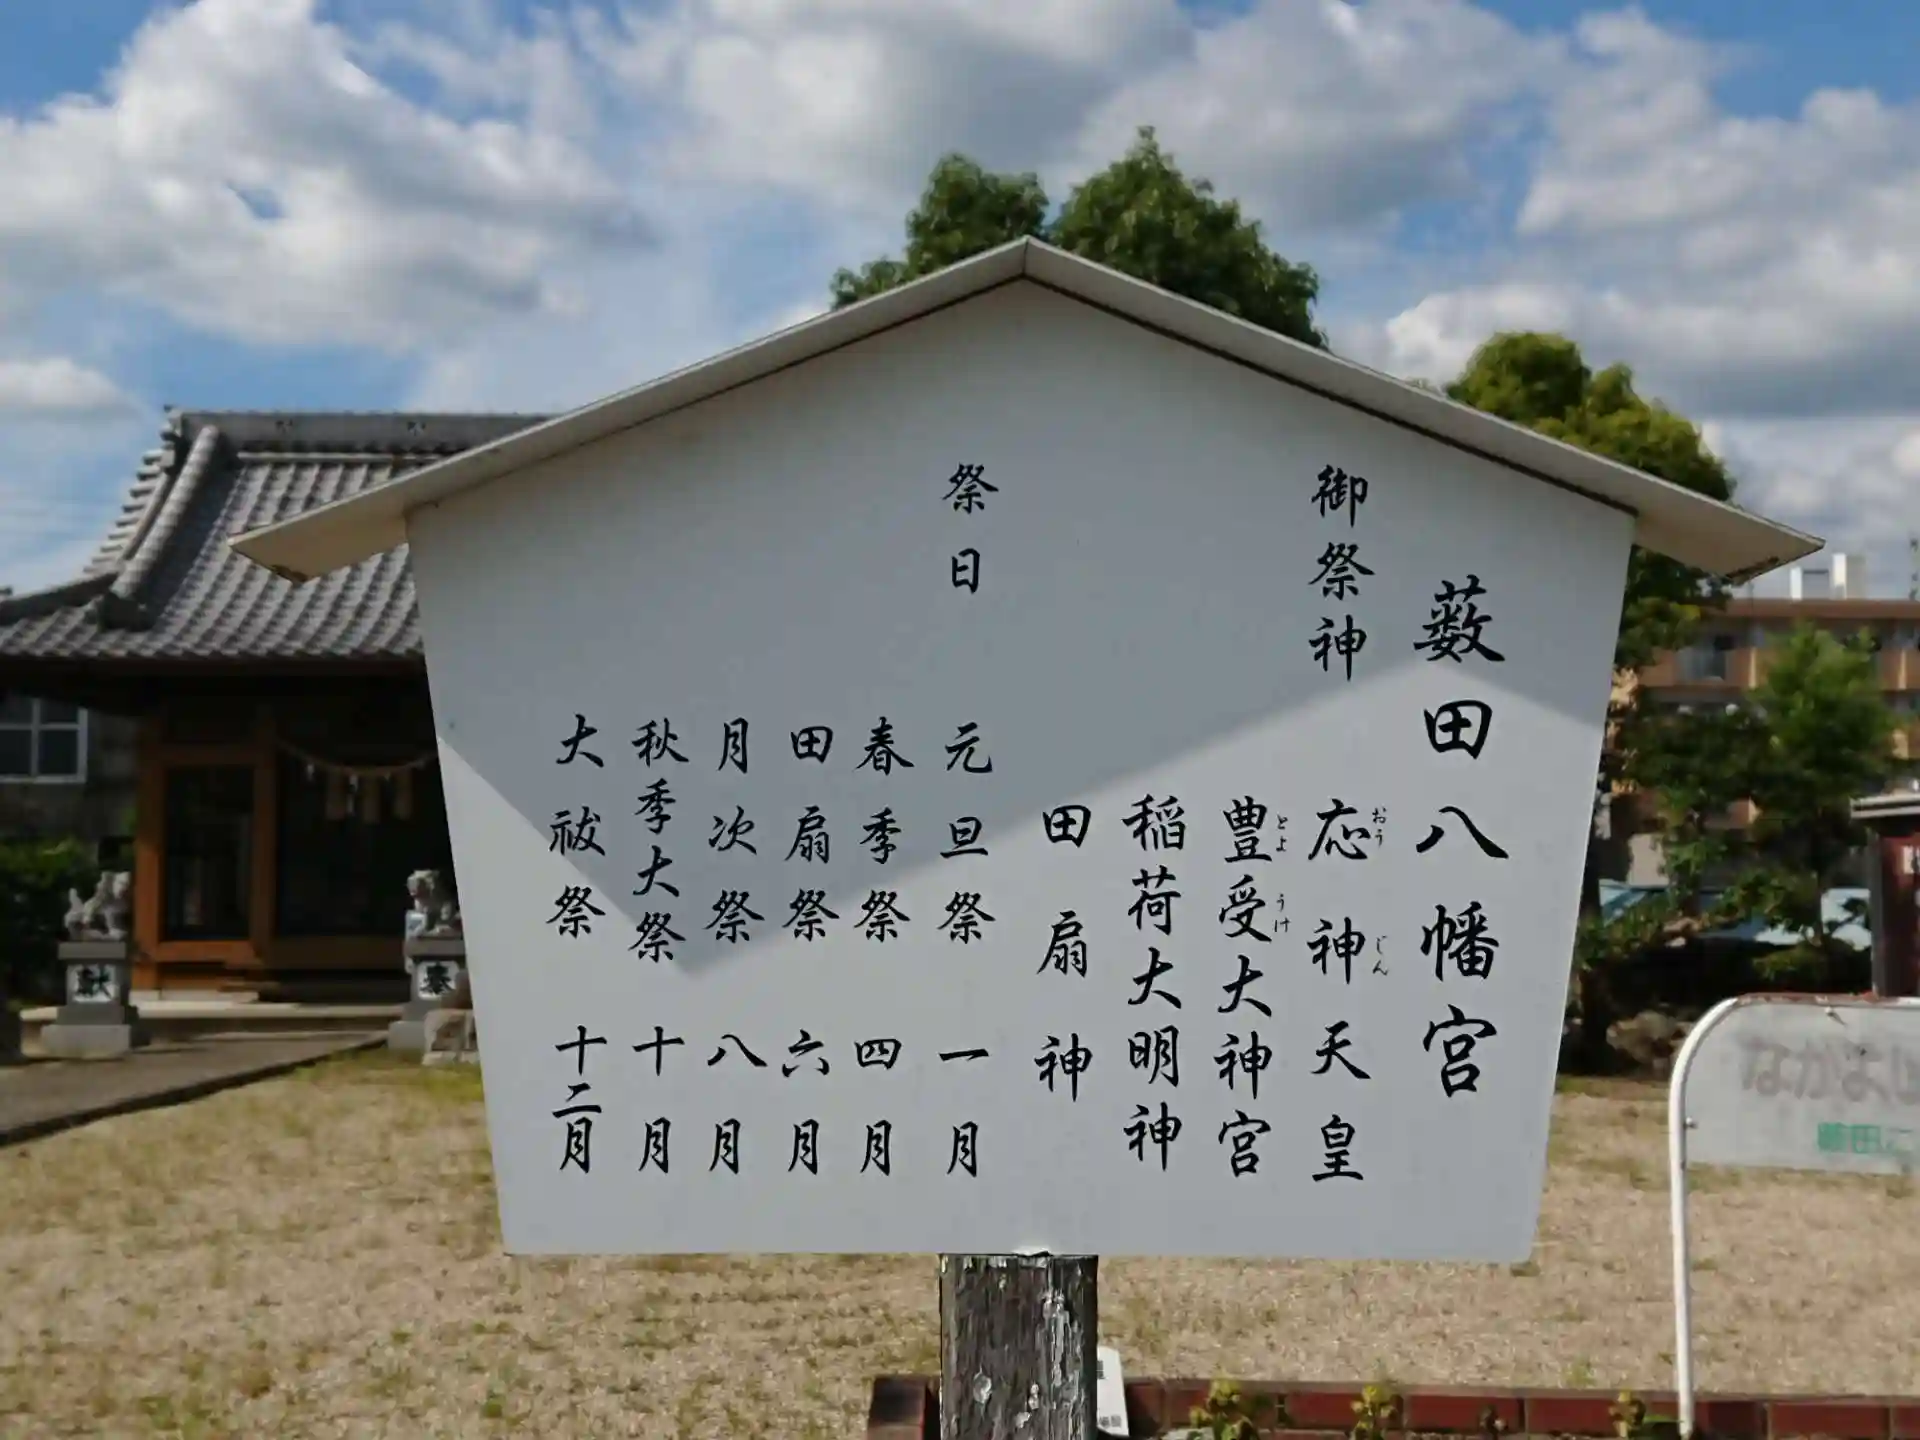 藪田八幡宮
御祭神 応神天皇
おう じん
豊受大神宮
とよ うけ
稲荷大明神
田扇神
祭日 元旦祭 一月
春季祭 四月
田扇祭 六月
月次祭 八月
秋季大祭 十月
大祓祭 十二月
献
奉